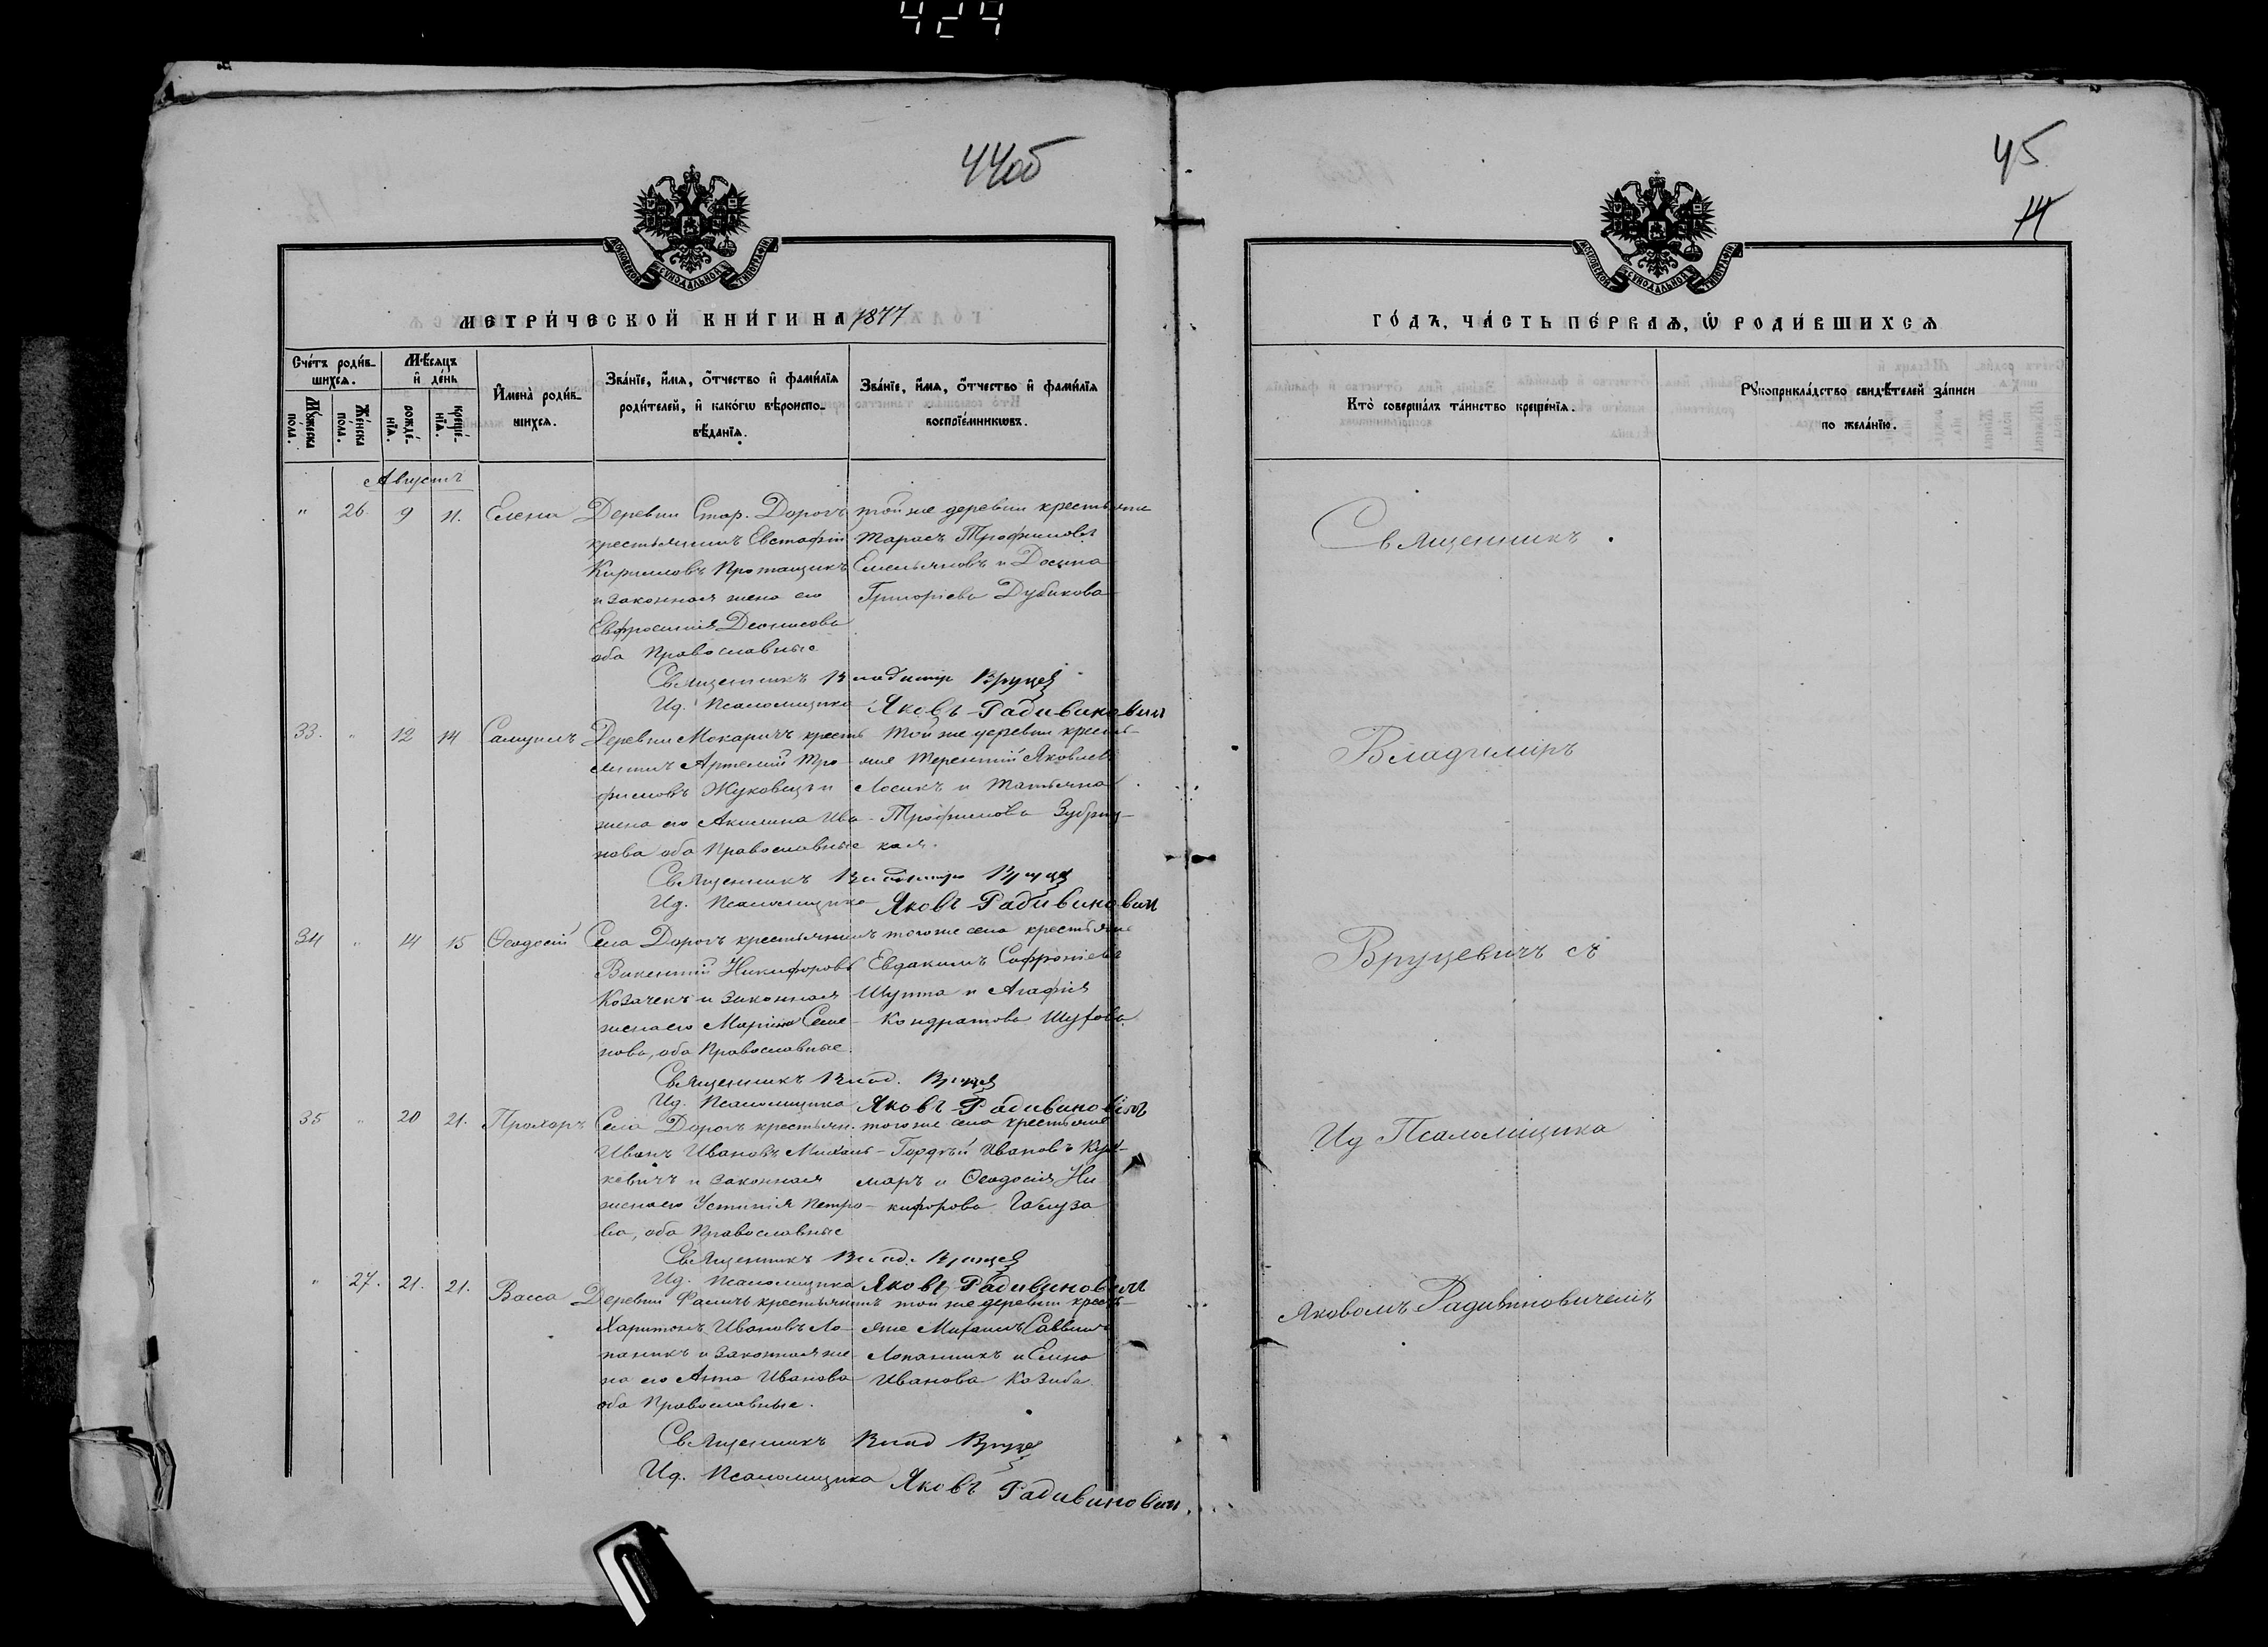 424
44об
МОСКОВСКОЙ СѴНОДАЛЬНОЙ ТИПОГРАФІИ
МЕТРИ́ЧЕСКОЙ КНИ́ГИ НА 1877
Сче́тъ роди́вшихсѧ.
Мꙋ́жеска пола.
Же́нска пола.
Мѣ́сѧцъ и҆ де́нь
рожде́нїѧ.
креще́нїѧ.
И҆мена̀ роди́вшихсѧ.
Зва́нїе, и҆́мѧ, ѻ҆́тчество и҆ фами́лїѧ
роди́телей, и҆ како́гѡ вѣроиспо-
вѣ́данїѧ.
Зва́нїе, и҆́мѧ, ѻ҆́тчество и҆ фами́лїѧ
воспрїе́мникѡвъ.
Августъ
" 26. 9 11. Елена
Деревни Стар. Дорогъ
крестьянинъ Евстафій
Кирилловъ Протащикъ
и законная жена его
Евфросинія Деонисова
оба Православные
той же деревни крестьяне
Тарасъ Трофимовъ
Емельяновъ и Домна
Григоріева Дубикова
Священникъ Владимір Вруцев
Ид. Псаломщика Яковъ Радивинович
33. " 12 14 Самуилъ
Деревни Макаричъ кресть
янинъ Артемій Тро-
фимовъ Жуковецъ и
жена его Акилина Ива-
нова оба Православные
той же деревни кресть-
яне Терентій Яковлевъ
Лосикъ и Татьяна
Трофимова Зубриц-
кая.
Священникъ Владимір Вруцев
Ид. Псаломщика Яковъ Радивинович
34 " 14 15 Ѳеодосій
Села Дорогъ крестьянинъ
Викентій Никифоровъ
Козачекъ и законная
жена его Марина Семе-
нова, оба Православные.
того же села крестьяне
Евдакимъ Софроніевъ
Шуппа и Агафія
Кондратова Шутова.
Священникъ Влад. Вруцев
Ид. Псаломщика Яковъ Радивиновичъ
35 " 20 21. Прохоръ
Села Дорогъ крестьян.
Иванъ Ивановъ Михаль-
кевичъ и законная
жена его Устинія Петро-
ва, оба Православные
того же села крестьяне
Гордѣй Ивановъ Кух-
маръ и Ѳеодосія Ни
кифорова Габуза
Священникъ Влад. Вруцев
Ид. Псаломщика Яковъ Радивинович
" 27. 21. 21. Васса
Деревни Фаличъ крестьянинъ
Харитонъ Ивановъ Ло-
паникъ и законная же-
на его Анна Иванова
оба Православные.
той же деревни кресть-
яне Михаилъ Саввинъ
Лопаникъ и Елена
Иванова Козиба.
Священникъ Влад Вруцев
Ид. Псаломщика Яковъ Радивинович.
45
14
МОСКОВСКОЙ СѴНОДАЛЬНОЙ ТИПОГРАФІИ
ГО́ДЪ, ЧА́СТЬ ПЕ́РВАѦ, Ѡ҆ РОДИ́ВШИХСѦ
Кто̀ соверша́лъ та́инство креще́нїѧ.
Рꙋкоприкла́дство свидѣ́телей за́писи
по жела́нїю.
Священникъ
Владиміръ
Вруцевичъ съ
Ид Псаломщика
Яковомъ Радивиновичемъ